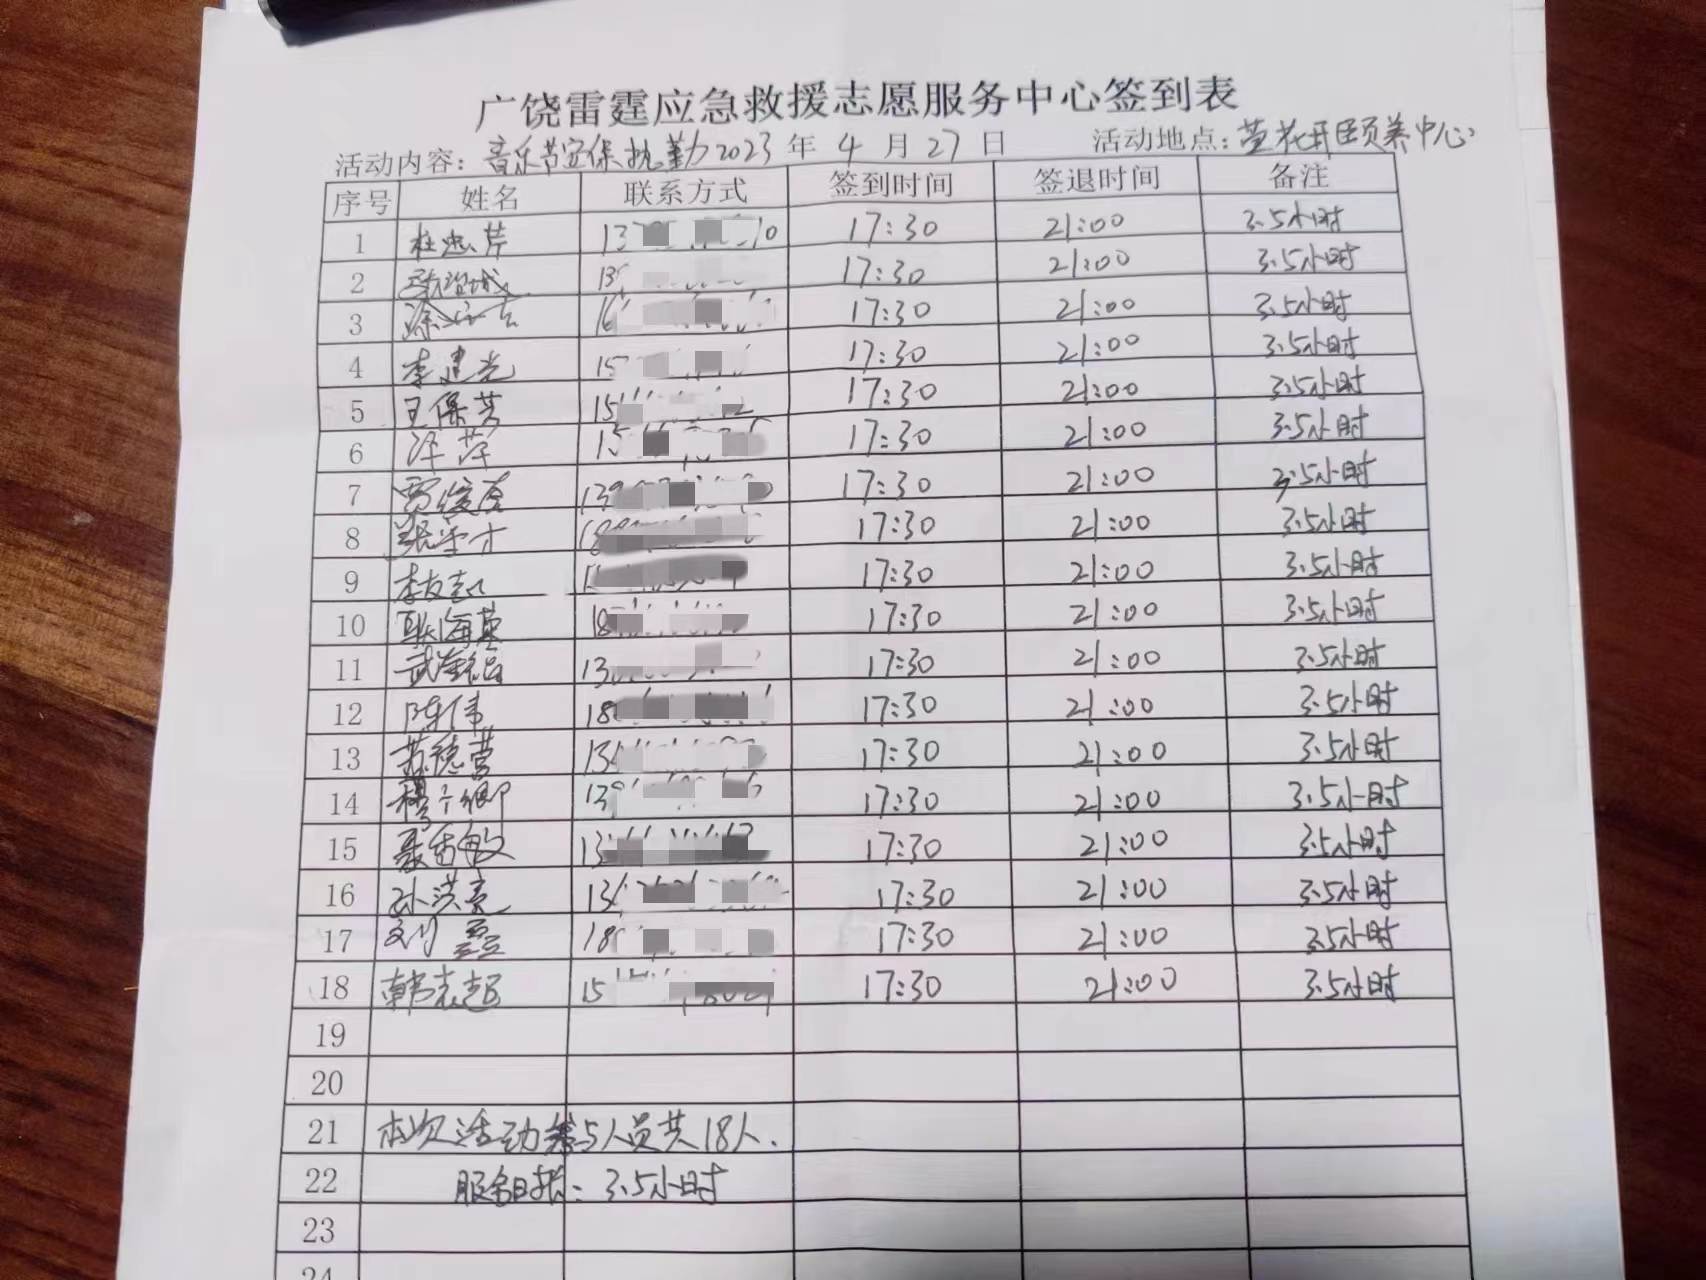 广饶雷霆应急救援志愿服务中心签到表
活动内容：音乐节安保执勤2023年4月27日 活动地点：萱花开颐养中心
序号 姓名 联系方式 签到时间 签退时间 备注
1 杜忠芹 17:30 21:00 3.5小时
2 17:30 21:00 3.5小时
3 17:30 21:00 3.5小时
4 李建光 15 17:30 21:00 3.5小时
5 王保芳 15 17:30 21:00 3.5小时
6 萍 15 17:30 21:00 3.5小时
7 贾俊 139 17:30 21:00 3.5小时
8 张 才 17:30 21:00 3.5小时
9 李友 17:30 21:00 3.5小时
10 耿海英 18 17:30 21:00 3.5小时
11 武 13 17:30 21:00 3.5小时
12 陈伟 18 17:30 21:00 3.5小时
13 苏德营 13 17:30 21:00 3.5小时
14 13 17:30 21:00 3.5小时
15 聂雷敏 13 17:30 21:00 3.5小时
16 孙洪亮 13 17:30 21:00 3.5小时
17 刘磊 18 17:30 21:00 3.5小时
18 韩志超 15 17:30 21:00 3.5小时
19
20
21 本次活动参与人员共18人.
22 服务时长：3.5小时
23
24